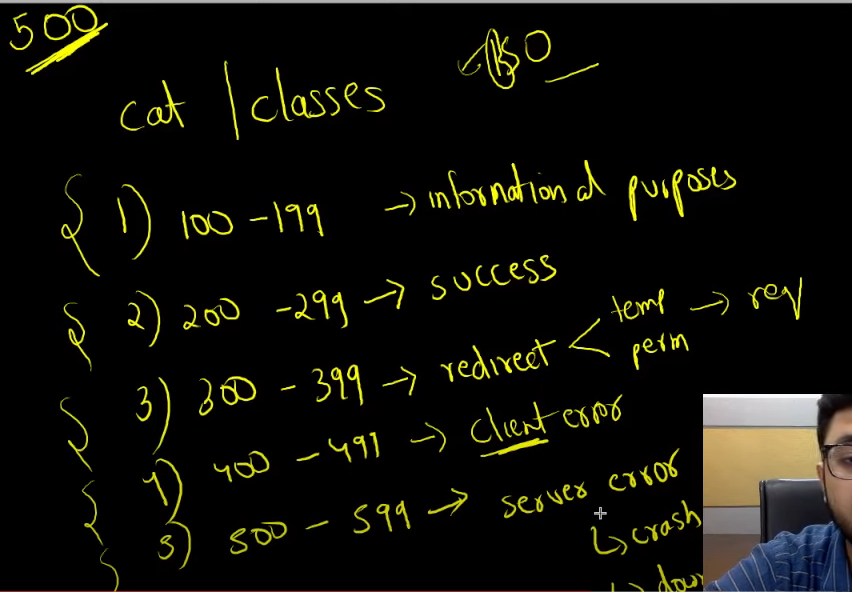 500
cat | classes
1) 100 - 199 → informational purposes
2) 200 - 299 → success
3) 300 - 399 → redirect < temp → req
perm
4) 400 - 499 → client error
5) 500 - 599 → server error
↳ crash
↳ dow